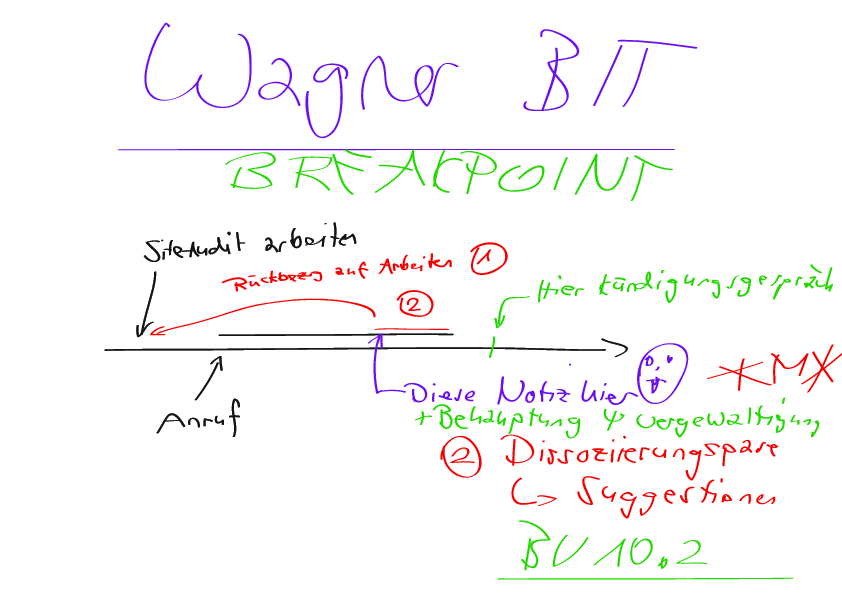 Wagner BIT
BREAKPOINT
SiteAudit arbeiten
Rückbezug auf Arbeiten ①
②
Hier Kündigungsgespräch
Diese Notiz hier
Anruf
+ Behauptung Ψ Vergewaltigung
② Dissoziierungs
↳ Suggestionen
BV 10.2